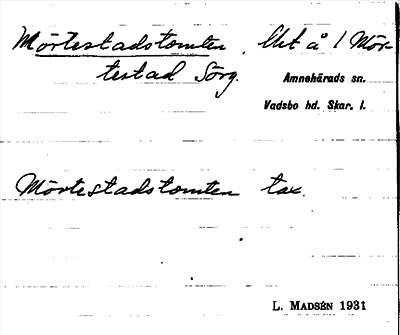 Mörtestadstomten, Utt å 1 Mör-
testad Sörg.
Amnehärads sn.
Vadsbo hd. Skar. l.
Mörtestadstomten tax.
L. MADSÉN 1931